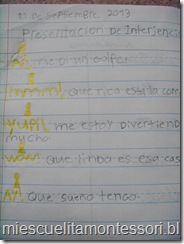 10 De septiembre, 2013
Presentacion De Interjeccio
me di un golpe
mmm! que rica esta la com
yupi! me estoy Divertiend
mucho.
wow que linda es esa cas
Ay! Que sueño tengo.
miescuelitamontessori.bl